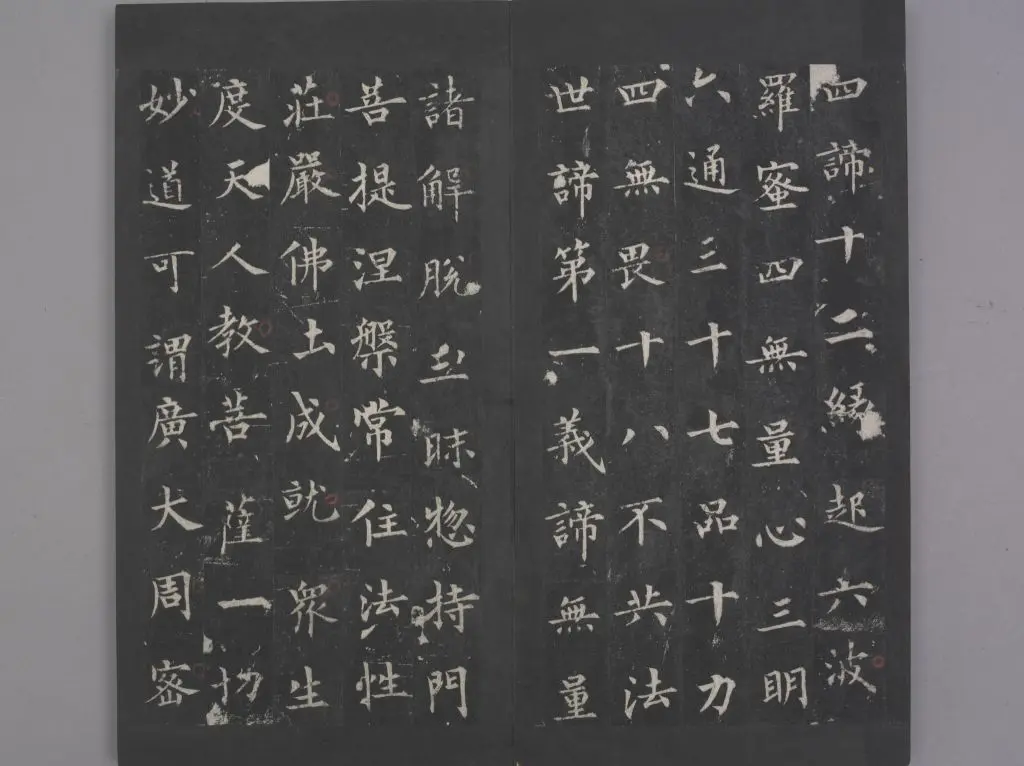 四諦十二緣起六波
羅蜜四無量心三明
六通三十七品十力
四無畏十八不共法
世諦第一義諦無量
諸解脱三昧惣持門
菩提涅槃常住法性
莊嚴佛土成就衆生
度天人教菩薩一切
妙道可謂廣大周密